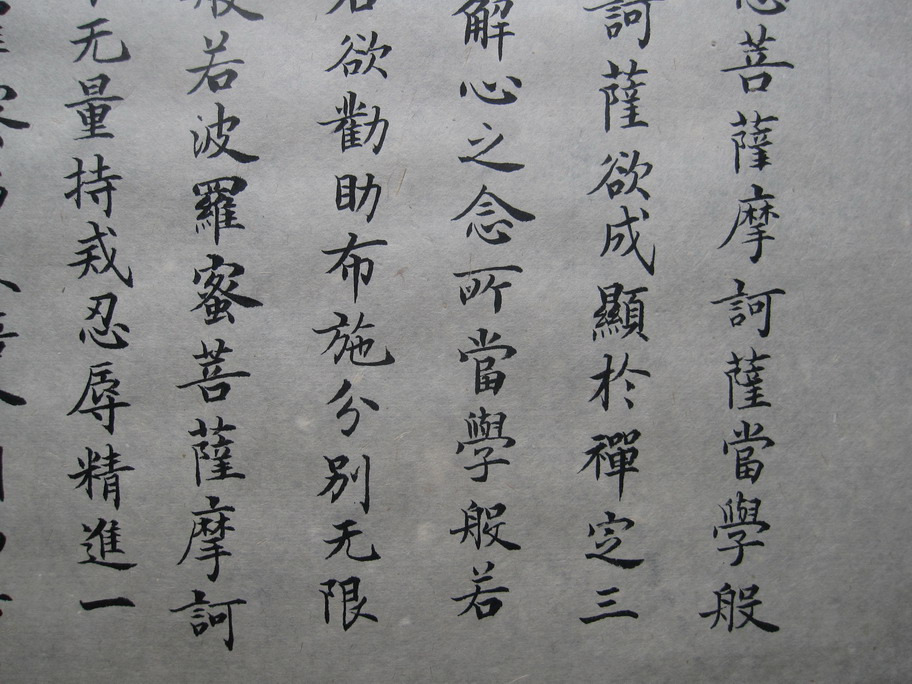 菩薩摩訶薩當學般
訶薩欲成顯於禪定三
解心之念所當學般若
欲勸助布施分別无限
般若波羅蜜菩薩摩訶
无量持戒忍辱精進一